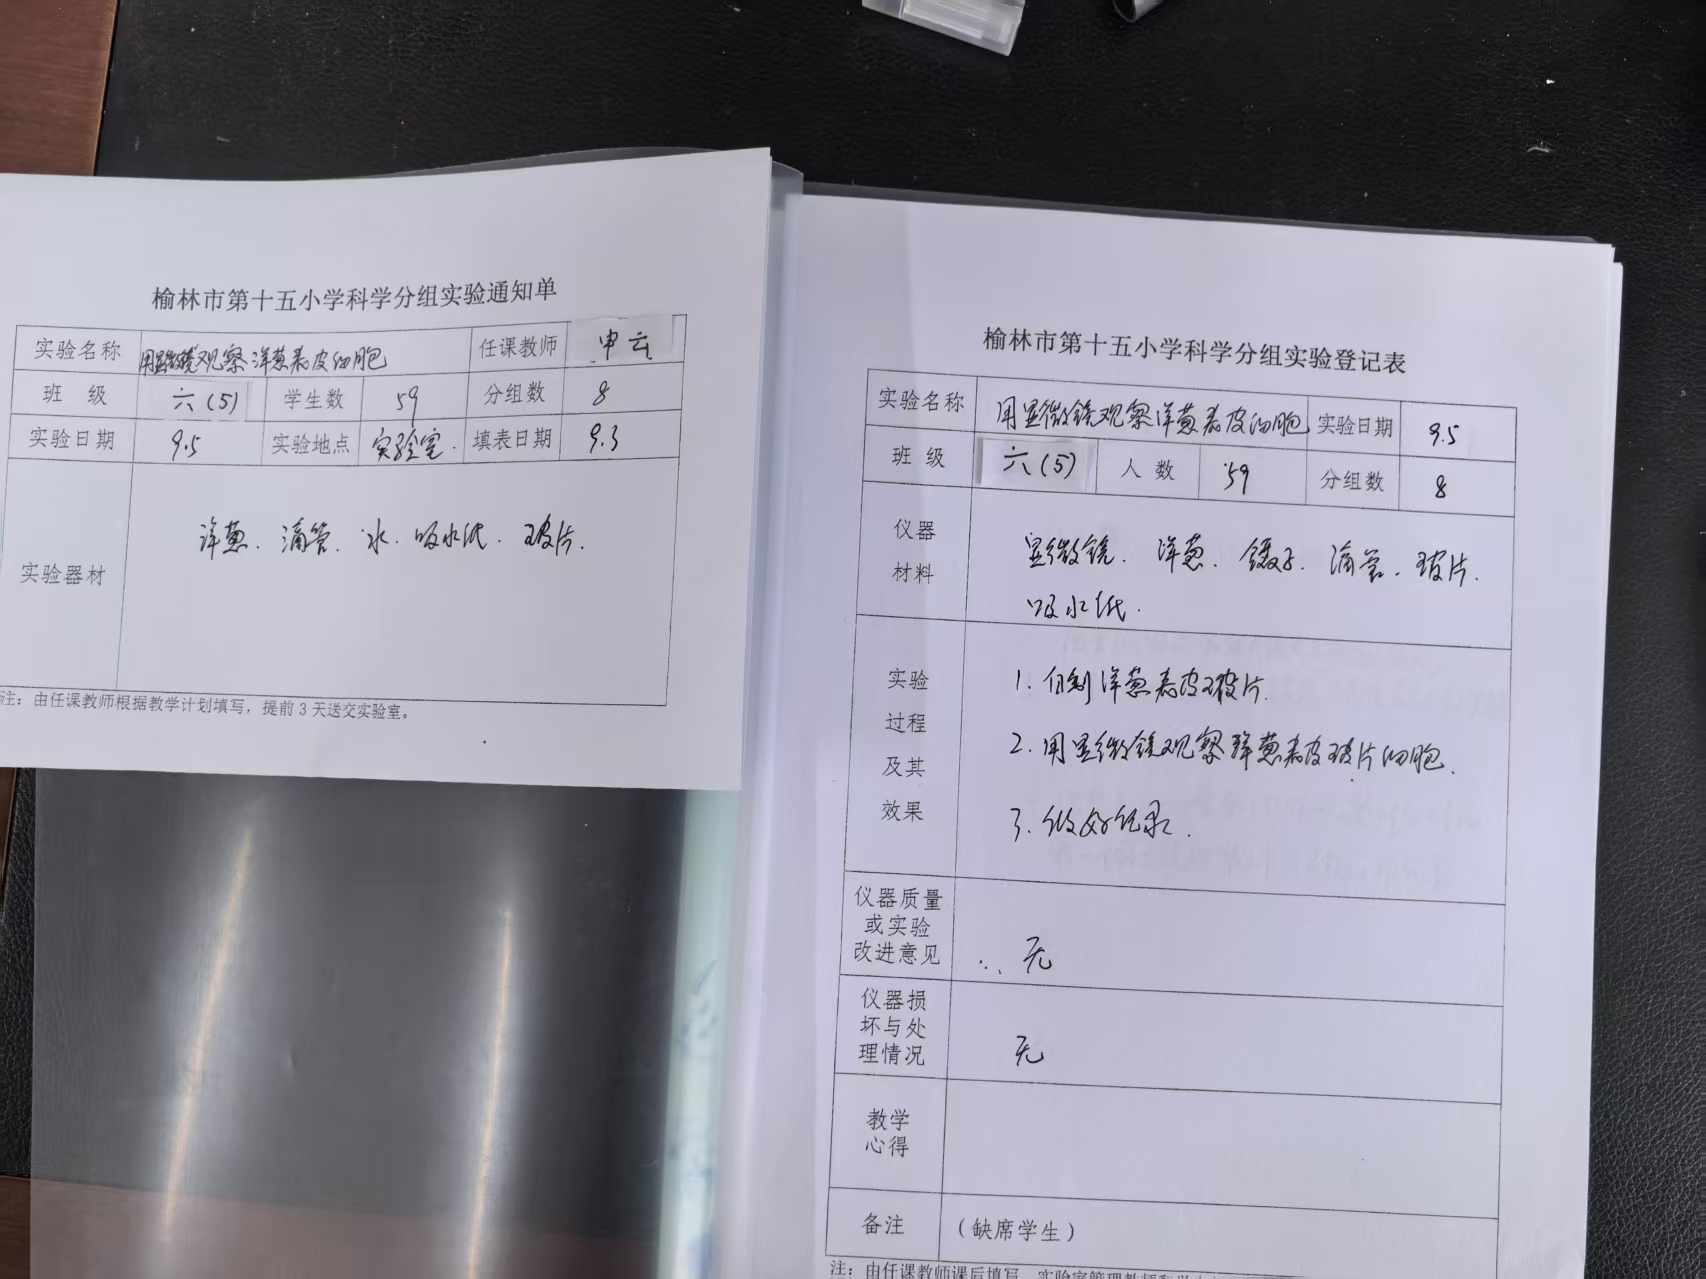 榆林市第十五小学科学分组实验通知单
实验名称 用显微镜观察洋葱表皮细胞 任课教师 申云
班 级 六(5) 学生数 59 分组数 8
实验日期 9.5 实验地点 实验室. 填表日期 9.3
实验器材 洋葱. 滴管. 水. 吸水纸. 玻片.
注：由任课教师根据教学计划填写，提前3天送交实验室。
榆林市第十五小学科学分组实验登记表
实验名称 用显微镜观察洋葱表皮细胞 实验日期 9.5
班 级 六(5) 人 数 59 分组数 8
仪器
材料
显微镜. 洋葱. 镊子. 滴管. 玻片.
吸水纸.
实验
过程
及其
效果
1. 自制洋葱表皮玻片.
2. 用显微镜观察洋葱表皮玻片细胞.
3. 做好记录.
仪器质量
或实验
改进意见
无
仪器损
坏与处
理情况
无
教学
心得
备注 （缺席学生）
注：由任课教师课后填写，实验室管理教师